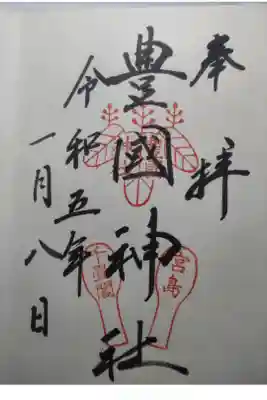 奉拝
豊國神社
令和五年
一月八日
千畳閣
宮島